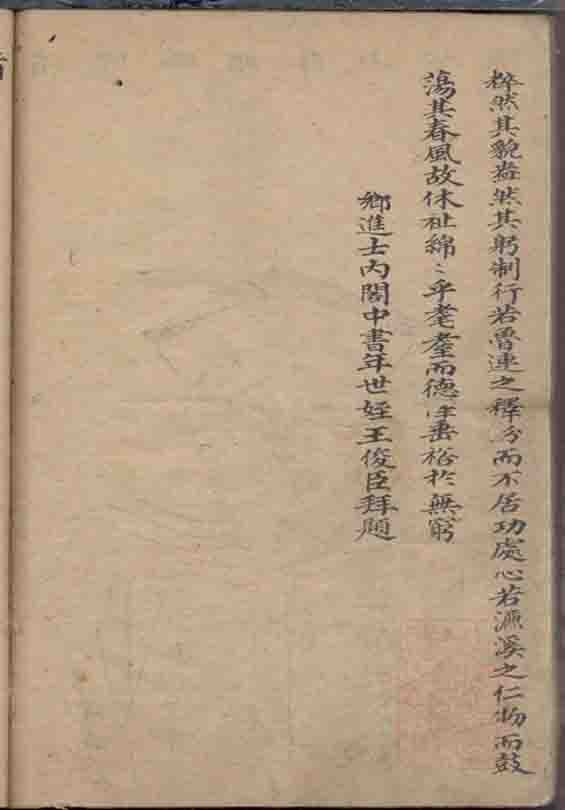 粹然其貌盎然其躬制行若魯連之釋分而不居功處心若濂溪之仁物而鼓
蕩其春風故休祉綿〻乎耄耋而德澤垂裕於無窮
鄉進士內閣中書年世姪王俊臣拜題